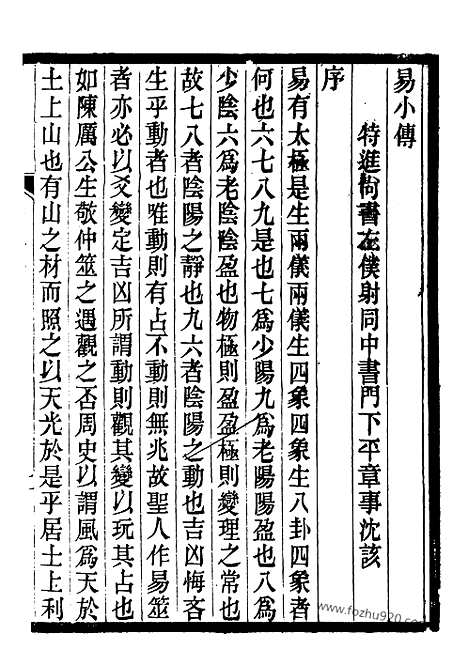 易小傳
特進尙書左僕射同中書門下平章事沈該
序
易有太極是生兩儀兩儀生四象四象生八卦四象者
何也六七八九是也七爲少陽九爲老陽陽盈也八爲
少陰六爲老陰陰盈也物極則盈盈極則變理之常也
故七八者陰陽之靜也九六者陰陽之動也吉凶悔吝
生乎動者也唯動則有占不動則無兆故聖人作易筮
者亦必以爻變定吉凶所謂動則觀其變以玩其占也
如陳厲公生敬仲筮之遇觀之否周史以謂風爲天於
土上山也有山之材而照之以天光於是乎居土上利
www.fozhu920.com